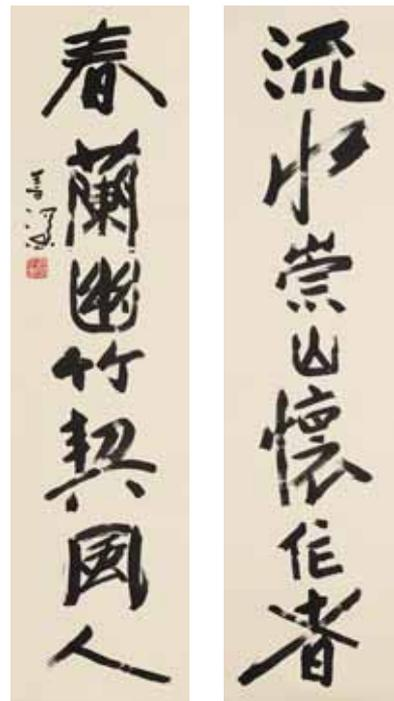 流水崇山懷作者
春蘭幽竹契人
善深